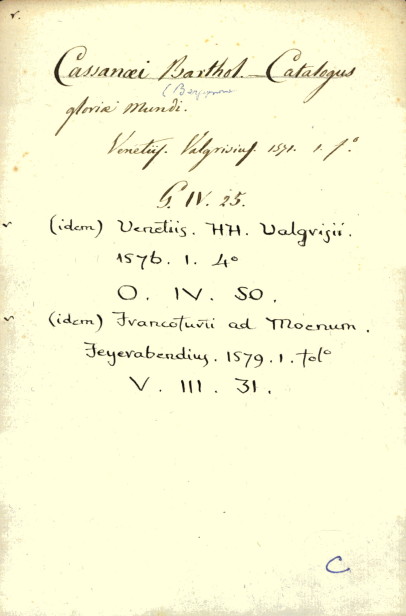 Cassanæi Barthol. – Catalogus
gloriæ Mundi.
Venetiis. Valgrisius. 1571. 1. fº
G. IV. 25.
(idem) Venetiis. HH. Valgrisii.
1576. 1. 4º
O. IV. 50.
(idem) Francofurti ad Moenum.
Feyerabendius. 1579. 1. folº
V. III. 31.
C